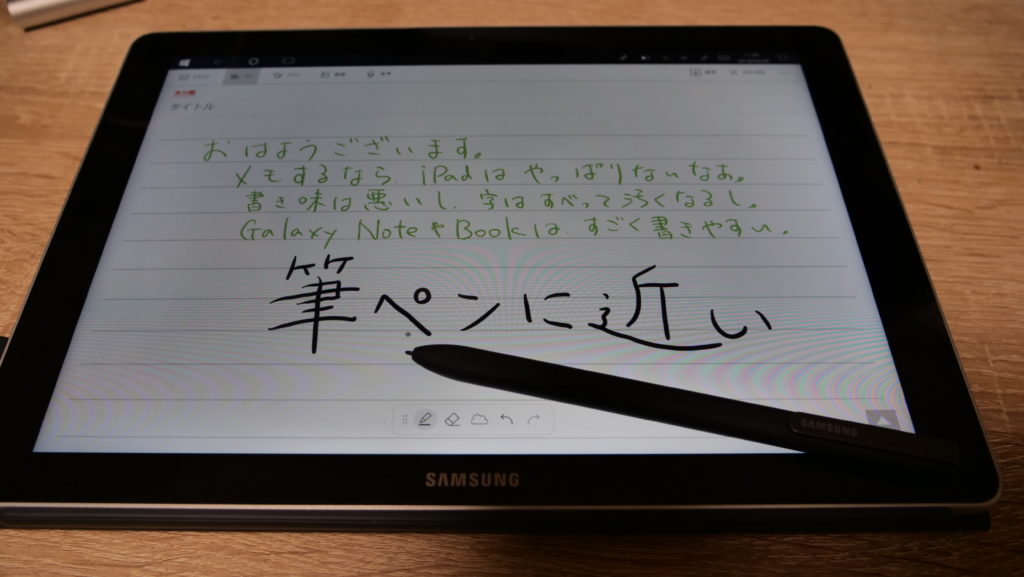 タイトル
おはようございます。
メモするなら、iPadはやっぱりないなあ。
書き味は悪いし、字はすべって汚くなるし。
Galaxy NoteやBookは、すごく書きやすい。
筆ペンに近い
SAMSUNG
SAMSUNG